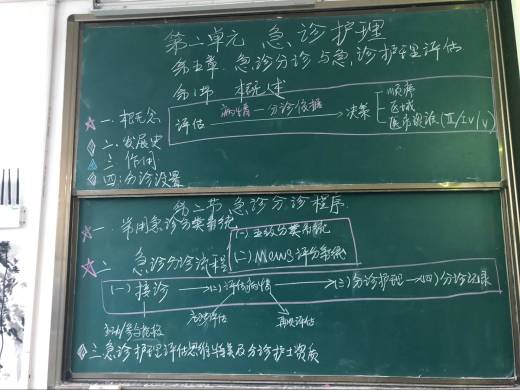 第二单元 急诊护理
第五章 急诊分诊与急诊护理评估
第1节 概述
一.概念
二.发展史
三.作用
四.分诊设置
评估 病情—分诊依据 决策
顺序
区域
医疗资源(Ⅲ/Ⅳ/Ⅴ)
第二节 急诊分诊程序
一 常用急诊分类系统
(一)五级分类系统
(二)MEWS评分系统
二 急诊分诊流程
(一)接诊 →(二)评估病情 →(三)分诊护理 →(四)分诊记录
初次评估 再次评估
三 急诊护理评估思维特点及分诊护士资质